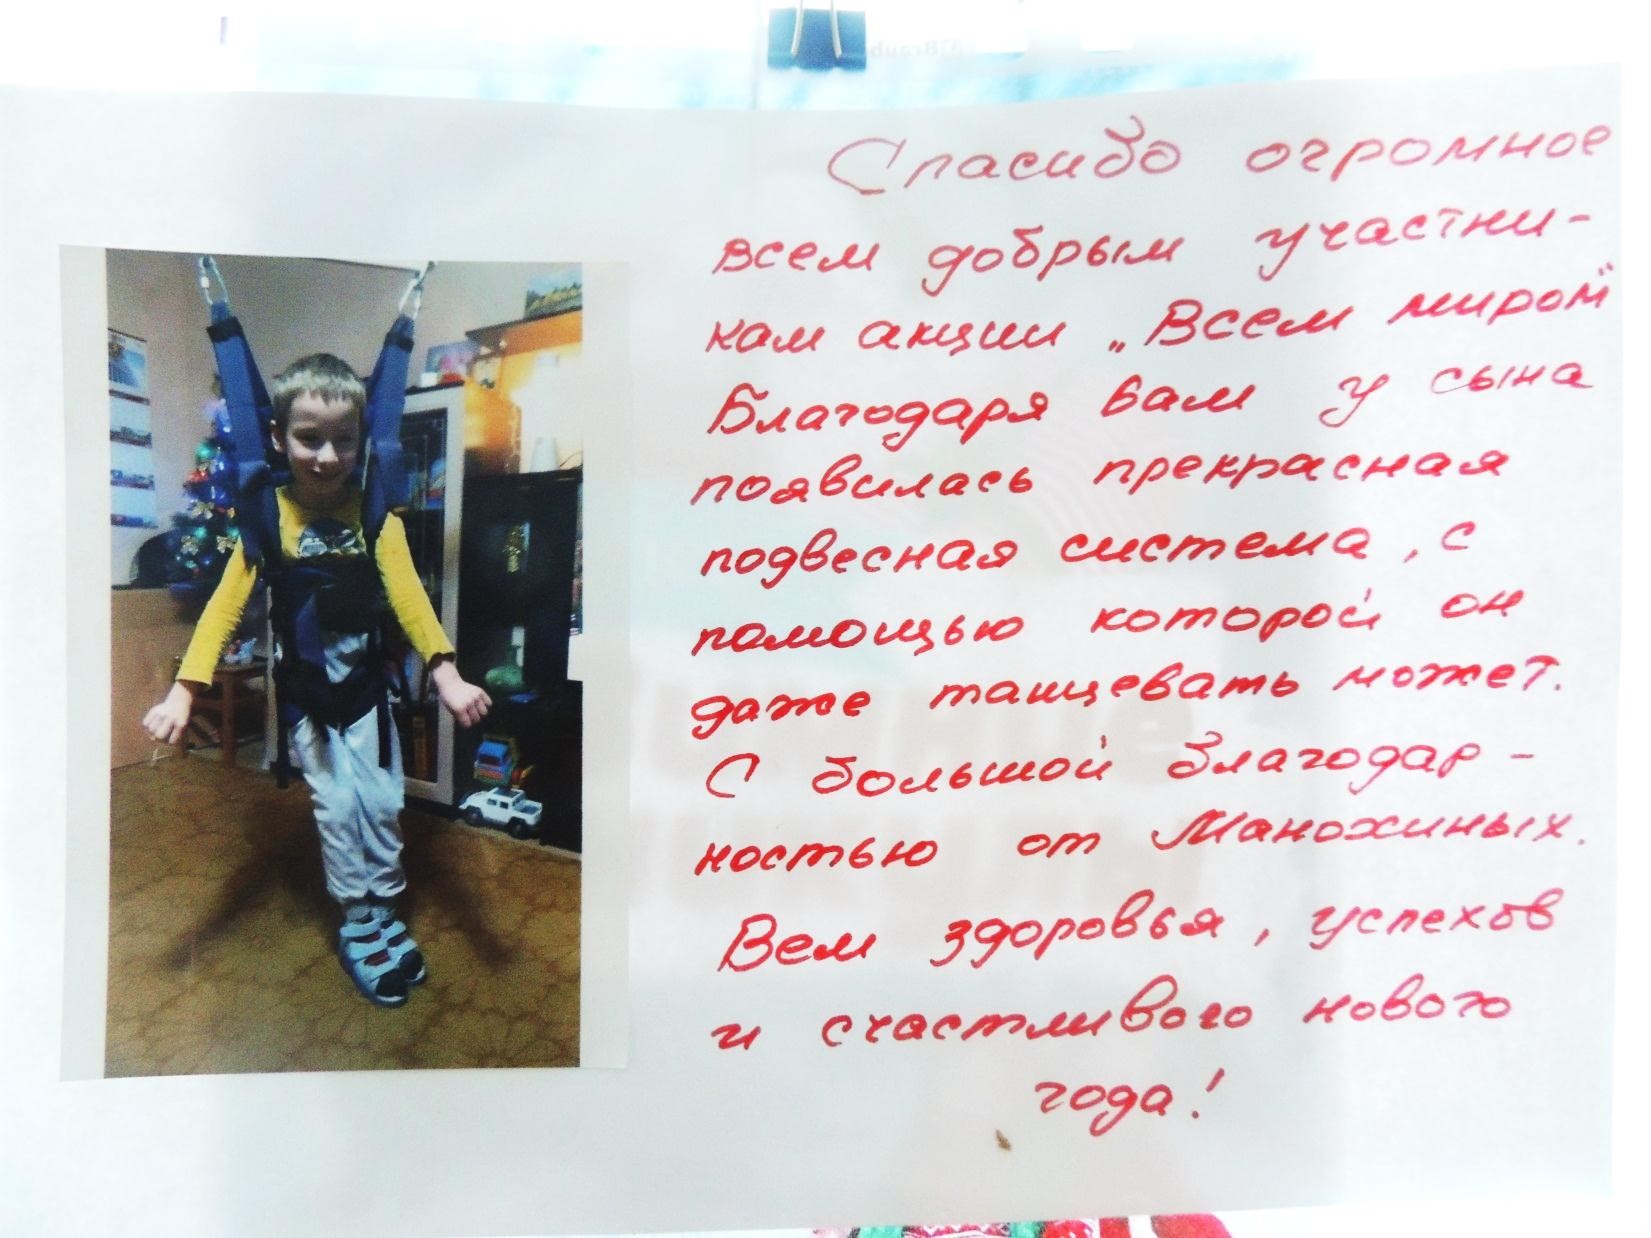 Спасибо огромное
всем добрым участни-
кам акции „Всем миром"
Благодаря вам у сына
появилась прекрасная
подвесная система, с
помощью которой он
даже танцевать может.
С большой благодар-
ностью от Манохиных.
Вем здоровья, успехов
и счастливого нового
года!